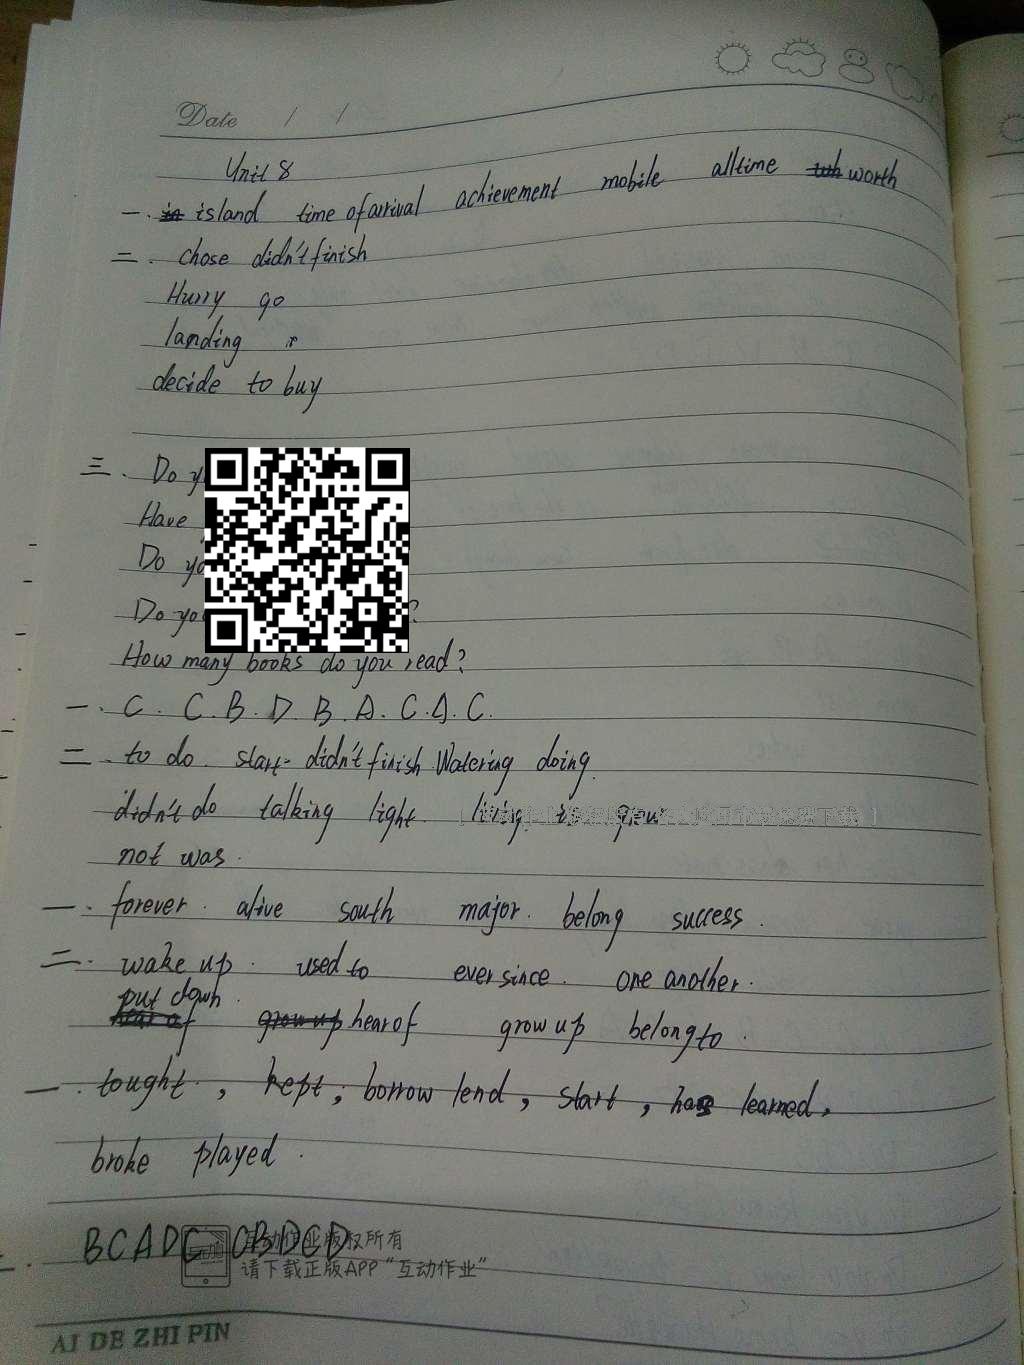 Date / /
Unit 8
一. island time of arrival achievement mobile alltime worth
二. chose didn't finish
Hurry go
landing
decide to buy
三. Do
Have
Do
Do you ?
How many books do you read?
一. C. C. B. D. B. A. C. A. C.
二. to do. start didn't finish Watering doing.
didn't do talking light. living grow
not was.
一. forever. alive south major. belong success.
二. wake up. used to ever since. one another.
put down.
hear of grow up belong to.
一. tought, kept; borrow lend, start, has learned,
broke played.
BCADC CBDCD
互动作业版权所有
请下载正版APP“互动作业”
AI DE ZHI PIN